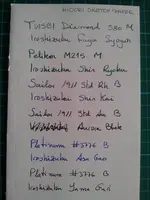 Twsbi Diamond 580 M
Iroshizuku Fuyu Syogun
Pelikan M215 M
Iroshizuku Shin Ryoku
Sailor 1911 Std Rh B
Iroshizuku Shin Kai
Sailor 1911 Std Au B
Aurora Black
Platinum #3776 B
Iroshizuku Asa Gao
Platinum #3776 B
Iroshizuku Yama Guri